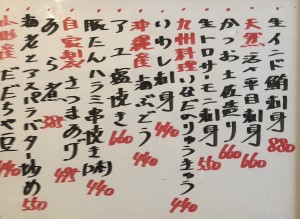 生インド鮪刺身 880
天然 活〆平目刺身 660
かつお土佐造り 660
生トロサーモン刺身 550
九州料理 いなだのりゅうきゅう 440
いわし刺身 440
沖縄産 海ぶどう 440
アユ塩焼き 660
豚たんハラミ串焼き(2本) 440
自家製 さつまあげ 495
あら煮 385
海老とアスパラバター炒め 550
山形産 だだちゃ豆 440